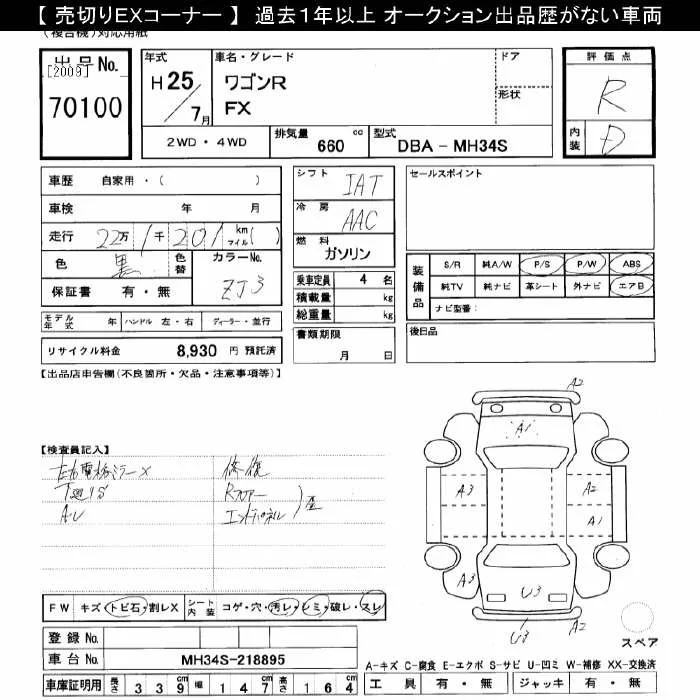 【 売切りEXコーナー 】 過去１年以上 オークション出品歴がない車両
(複合機)対応用紙
出品No.
[2009]
70100
年式
H 25 / 7月
車名・グレード
ワゴンR
FX
ドア
形状
評価点
R
内装
D
2WD・4WD
排気量 660 cc
型式 DBA - MH34S
車歴 自家用・( )
車検 年 月
走行 22万 1千 201 km マイル( )
色 黒 色替
カラーNo.
ZJ3
保証書 有・無
モデル年式 年 ハンドル 左・右 ディーラー・並行
リサイクル料金 8,930 円 預託済
シフト IAT
冷房 AAC
燃料 ガソリン
乗車定員 4 名
積載量 kg
総重量 kg
書類期限
月 日
セールスポイント
装備品
S/R 純A/W P/S P/W ABS
純TV 純ナビ 革シート 外ナビ エアB
ナビ型番:
後日品
【出品店申告欄(不良箇所・欠品・注意事項等)】
【検査員記入】
左右電格ミラーX
下廻りS
A・U
修復
Rフロアー
エンドパネル
歪
A2
A1
A3
A2
A1
A3
U3
A2
U3
スペア
FW キズ・トビ石・割レX シート内装 コゲ・穴・汚レ・シミ・破レ・スレ
登録 No.
車台 No. MH34S-218895
車庫証明用 長さ 3 3 9 cm 幅 1 4 7 cm 高さ 1 6 4 cm
A-キズ C-腐食 E-エクボ S-サビ U-凹ミ W-補修 XX-交換済
工具 有・無 ジャッキ 有・無